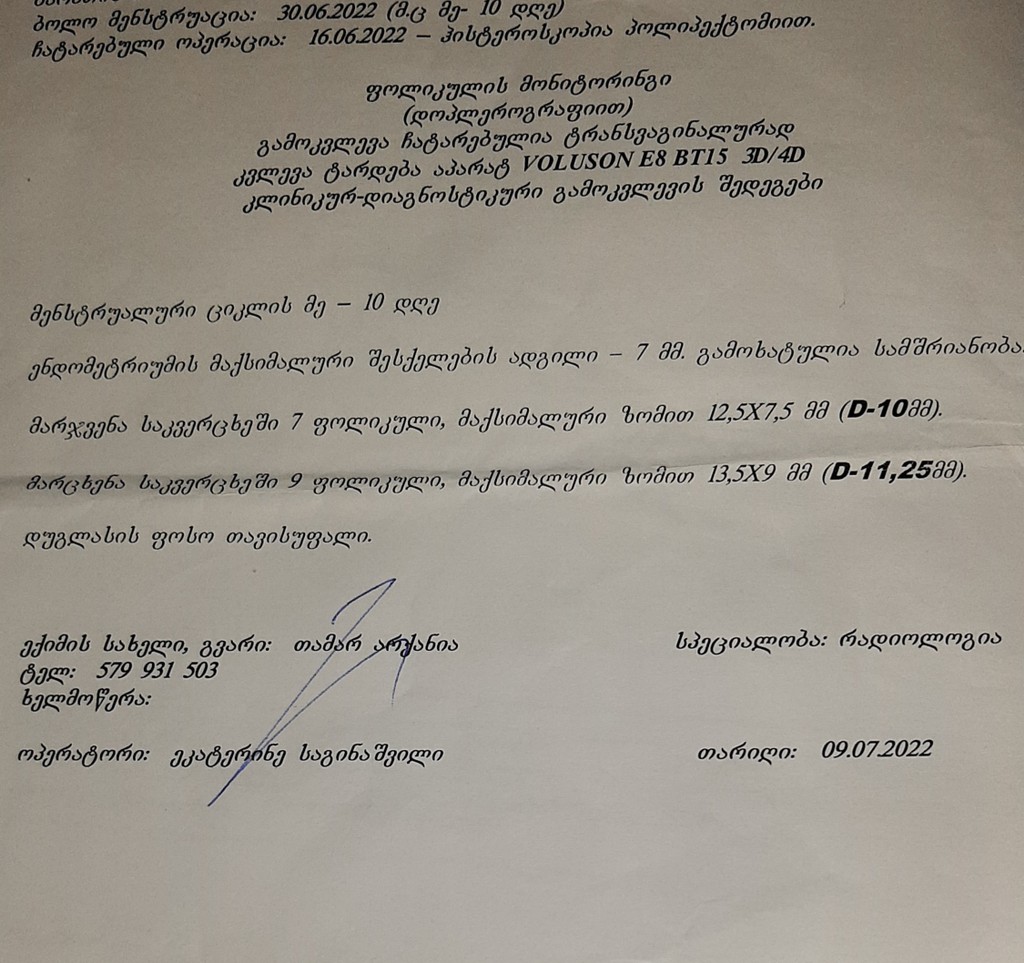 ბოლო მენსტრუაცია: 30.06.2022 (მ.ც მე- 10 დღე)
ჩატარებული ოპერაცია: 16.06.2022 – ჰისტეროსკოპია პოლიპექტომიით.
ფოლიკულის მონიტორინგი
(დოპლეროგრაფიით)
გამოკვლევა ჩატარებულია ტრანსვაგინალურად
კვლევა ტარდება აპარატ VOLUSON E8 BT15 3D/4D
კლინიკურ-დიაგნოსტიკური გამოკვლევის შედეგები
მენსტრუალური ციკლის მე – 10 დღე
ენდომეტრიუმის მაქსიმალური შესქელების ადგილი – 7 მმ. გამოხატულია სამშრიანობა.
მარჯვენა საკვერცხეში 7 ფოლიკული, მაქსიმალური ზომით 12,5X7,5 მმ (D-10მმ).
მარცხენა საკვერცხეში 9 ფოლიკული, მაქსიმალური ზომით 13,5X9 მმ (D-11,25მმ).
დუგლასის ფოსო თავისუფალი.
ექიმის სახელი, გვარი: თამარ არქანია სპეციალობა: რადიოლოგია
ტელ: 579 931 503
ხელმოწერა:
ოპერატორი: ეკატერინე საგინაშვილი თარიღი: 09.07.2022